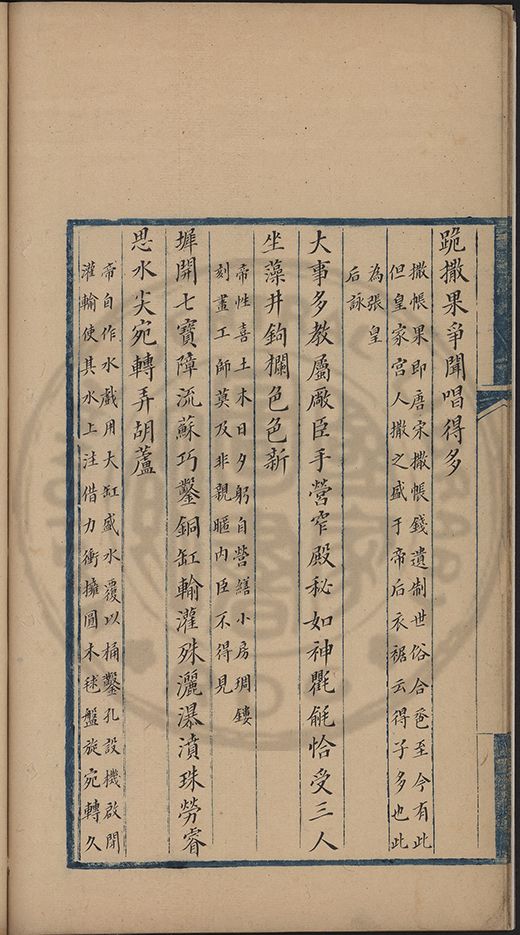 跪撒果爭聞唱得多
撒帳果即唐宋撒帳錢遺制世俗合巹至今有此
但皇家宮人撒之盛于帝后衣裾云得子多也此
為張皇
后詠
大事多教屬厰臣手營窄殿秘如神氍毹恰受三人
坐藻井鉤攔色色新
帝性喜土木日夕躬自營繕小房琱鏤
刻畫工師莫及非親暱内臣不得見
墀開七寶障流蘇巧鑿銅缸輸灌殊灑瀑漬珠勞睿
思水尖宛轉弄胡蘆
帝自作水戲用大缸盛水覆以桶鑿孔設機啟閉
灌輸使其水上注借力衝擁圓木毬盤旋宛轉久